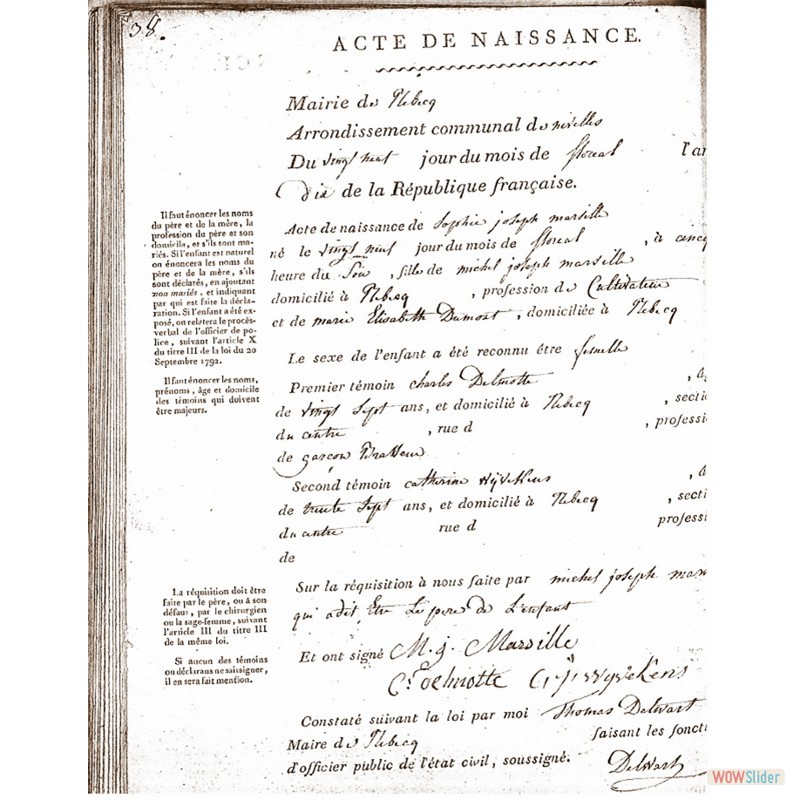 38.
ACTE DE NAISSANCE.
Mairie de Rebecq
Arrondissement communal de nivelles
Du vingt neuf jour du mois de floreal l'an
dix de la République française.
Il faut énoncer les noms
du père et de la mère, la
profession du père et son
domicile, et s'ils sont ma-
riés. Si l'enfant est naturel
on énoncera les noms du
père et de la mère, s'ils
sont déclarés, en ajoutant
non mariés, et indiquant
par qui est faite la décla-
ration. Si l'enfant a été ex-
posé, on relatera le procès-
verbal de l'officier de po-
lice, suivant l'article X
du titre III de la loi du 20
Septembre 1792.
Il faut énoncer les noms,
prénoms, âge et domicile
des témoins qui doivent
être majeurs.
Acte de naissance de Sophie joseph marsille
né le vingt neuf jour du mois de floreal , à cincq
heure du Soir , fille de michel joseph marsille
domicilié à Rebecq , profession de Cultivateur
et de marie Elisabeth Dumont , domiciliée à Rebecq
Le sexe de l'enfant a été reconnu être femelle
Premier témoin charles Delmotte , âg
de vingt Sept ans, et domicilié à Rebecq , secti
du centre , rue d , professi
de garçon Brasseur
Second témoin catherine Wÿvekens , â
de trente Sept ans, et domicilié à Rebecq , secti
du centre rue d professi
de
La réquisition doit être
faite par le père, ou à son
défaut, par le chirurgien
ou la sage-femme, suivant
l'article III du titre III
de la même loi.
Si aucun des témoins
ou déclarans ne sait signer,
il en sera fait mention.
Sur la réquisition à nous faite par michel joseph mar
qui a dit Etre Le pere de L'enfant
Et ont signé M. j. Marsille
C. Delmotte C. j. Wyvekens
Constaté suivant la loi par moi Thomas Delwart
Maire de Rebecq faisant les foncti
d'officier public de l'état civil, soussigné.
Delwart
WOWSlider